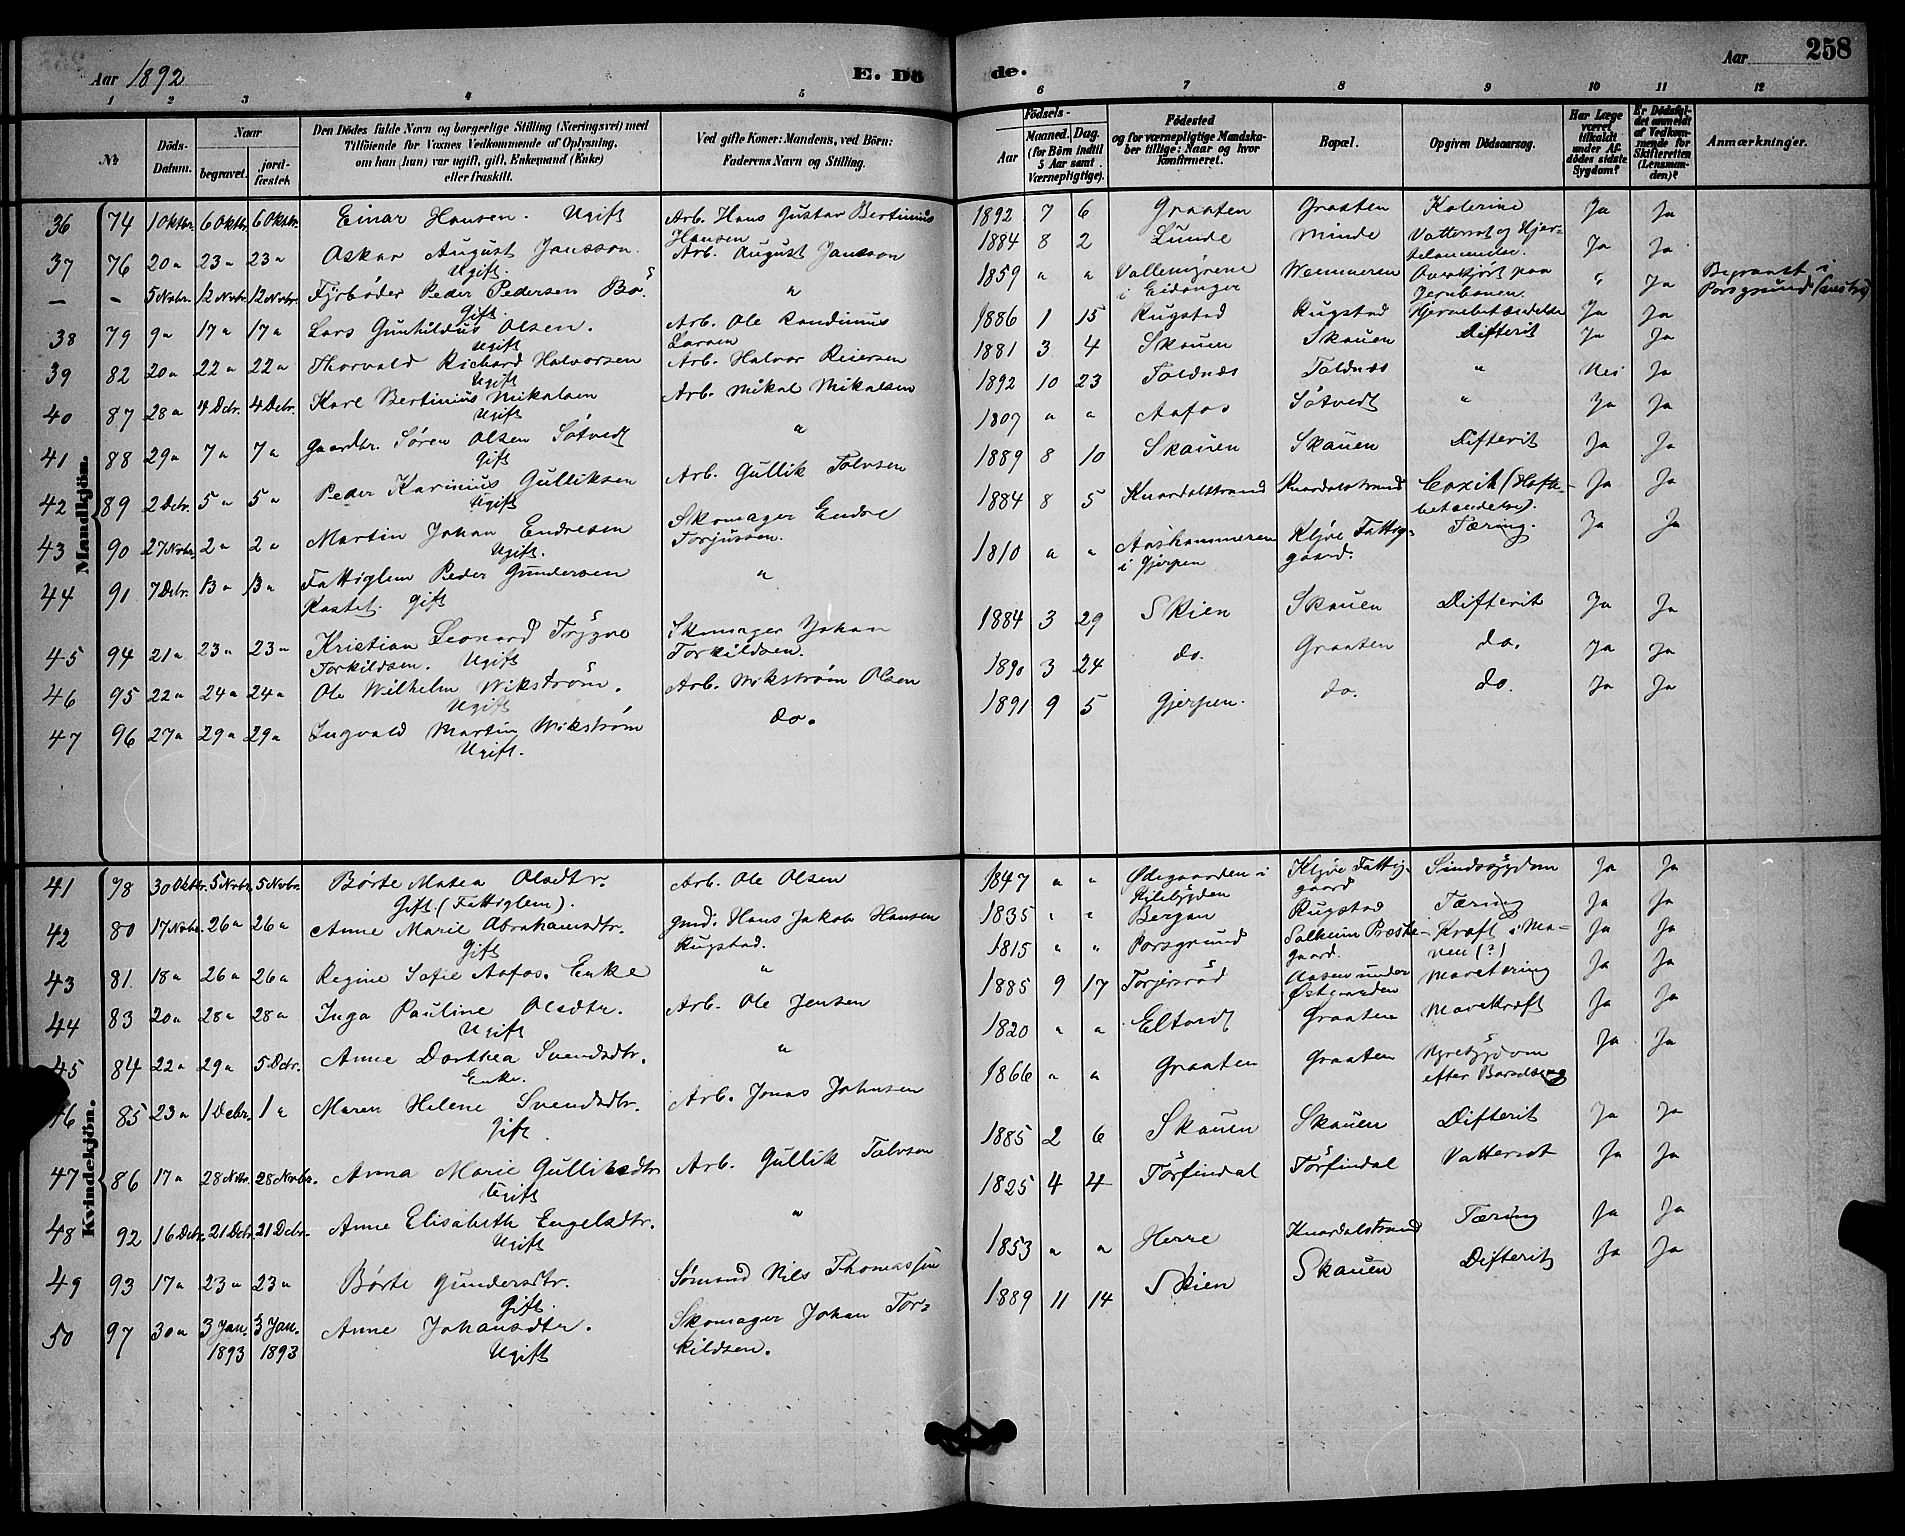 Aar 1892
E. Dö
de.
Aar
258
1 2 3 4 5 6 7 8 9 10 11 12
№
Döds-Datum.
Naar
begravet.
jord-fæstet.
Den Dödes fulde Navn og borgerlige Stilling (Næringsvei) med
Tilföiende for Voxnes Vedkommende af Oplysning,
om han (hun) var ugift, gift, Enkemand (Enke)
eller fraskilt.
Ved gifte Koner: Mandens, ved Börn:
Faderens Navn og Stilling.
Födsels-
Aar
Maaned. Dag.
(for Börn indtil
5 Aar samt
Værnepligtige).
Födested
og for værnepligtige Mandska-
ber tillige: Naar og hvor
konfirmeret.
Bopæl.
Opgiven Dödsaarsag.
Har Læge
været
tilkaldt
under Af-
dödes sidste
Sygdom?
Er Dödsfal-
det anmeldt
af Vedkom-
mende for
Skifteretten
(Lensman-
den)?
Anmærkninger.
Mandkjön.
36 74 1 Oktbr. 6 Oktbr. 6 Oktbr. Einar Hansen. Ugift Arb. Hans Gustav Bertinius Hansen 1892 7 6 Graaten Graaten Kolerine Ja Ja
37 76 20 " 23 " 23 " Oskar August Jansson. Ugift. Arb. August Jansson 1884 8 2 Lunde Minde Vattersot og Hjer- Ja Ja
– – 5 Novbr. 12 Novbr. 12 Novbr. Fyrbøder Peder Pedersen Bö. Gift. " 1859 " " Vallermyrene i Eidanger Overkjørt paa Jernbanen. " Ja Begravet i Porsgrund
38 79 9 " 17 " 17 " Lars Gunhildus Olsen. Ugift Arb. Ole Larsen 1886 1 15 Rugstad Rugstad Hjernebetændelse Ja Ja
39 82 20 " 22 " 22 " Thorvald Richard Halvorsen Ugift Arb. Halvor Reiersen 1881 3 4 Skauen Skauen Difterit Ja Ja
40 87 28 " 4 Debr. 4 Debr. Karl Bertinius Mikalsen Ugift Arb. Mikal Mikalsen 1892 10 23 Toldnæs Toldnæs " Nei Ja
41 88 29 " 7 " 7 " Gaardbr. Sören Olsen Sötvedt Gift " 1807 " " Aafos Sötvedt " Ja Ja
42 89 2 Debr. 5 " 5 " Peder Karinius Gulliksen Ugift Arb. Gullik Tolvsen 1889 8 10 Skauen Skauen Difterit Ja Ja
43 90 27 Novbr. 2 " 2 " Martin Johan Endresen Ugift. Skomager Endre Torjussen. 1884 8 5 Knardalstrand Knardalstrand Coxit (Hofte-betændelse). Ja Ja
44 91 7 Debr. 13 " 13 " Fattiglem Peder Gundersen Kastet. Gift " 1810 " " Aashammeren i Gjerpen Kljve Fattig-gaard. Tæring. Ja Ja
45 94 21 " 23 " 23 " Kristian Leonard Trygve Torkildsen. Ugift Skomager Johan Torkildsen. 1884 3 29 Skien Skauen Difterit Ja Ja
46 95 22 " 24 " 24 " Ole Wilhelm Wikström. Ugift Arb. Wikström Olsen 1890 3 24 do. Graaten do. Ja Ja
47 96 27 " 29 " 29 " Ingvald Martin Wikström Ugift. do. 1891 9 5 Gjerpen. do. do. Ja Ja
Kvindekjön.
41 78 30 Oktbr. 5 Novbr. 5 Novbr. Börte Matea Olsdtr. Gift (Fattiglem). Arb. Ole Olsen 1847 " " Ødegaarden i Kilebygden Kljve Fattig-gaard Sindssygdom Ja Ja
42 80 17 Novbr. 26 " 26 " Anne Marie Abrahamsdtr. Gift Gmd. Hans Jakob Hansen Rugstad. 1835 " " Bergan Rugstad Tæring Ja Ja
43 81 18 " 26 " 26 " Regine Sofie Aafos. Enke " 1815 " " Porsgrund Solheim Præste-gaard. Kræft i Ma-ven (?) Ja Ja
44 83 20 " 28 " 28 " Inga Pauline Olsdtr. Ugift Arb. Ole Jensen 1885 9 17 Torjersröd Aasen under Østgaarden Mavetæring Ja Ja
45 84 22 " 29 " 5 Debr. Anne Dorthea Svendsdtr. Enke. " 1820 " " Eltvedt Graaten Mavekræft Ja Ja
46 85 23 " 1 Debr. 1 " Maren Helene Svendsdtr. Gift. Arb. Jonas Johnsen 1866 " " Graaten Graaten Nyresygdom efter Barselseng Ja Ja
47 86 17 " 28 Novbr. 28 Novbr. Anna Marie Gulliksdtr Ugift Arb. Gullik Tolvsen 1885 2 6 Skauen Skauen Difterit Ja Ja
48 92 16 Debr. 21 Debr. 21 Debr. Anne Elisabeth Engelsdtr. Ugift " 1825 4 4 Törfindal Törfindal Vattersot Ja Ja
49 93 17 " 23 " 23 " Börte Gundersdtr. Gift. Sömand Nils Thomassen 1853 " " Herre Knardalstrand Tæring Ja Ja
50 97 30 " 3 Jan. 1893 3 Jan. 1893 Anne Johansdtr. Ugift Skomager Johan Tor-kildsen. 1889 11 14 Skien Skauen Difterit Ja Ja